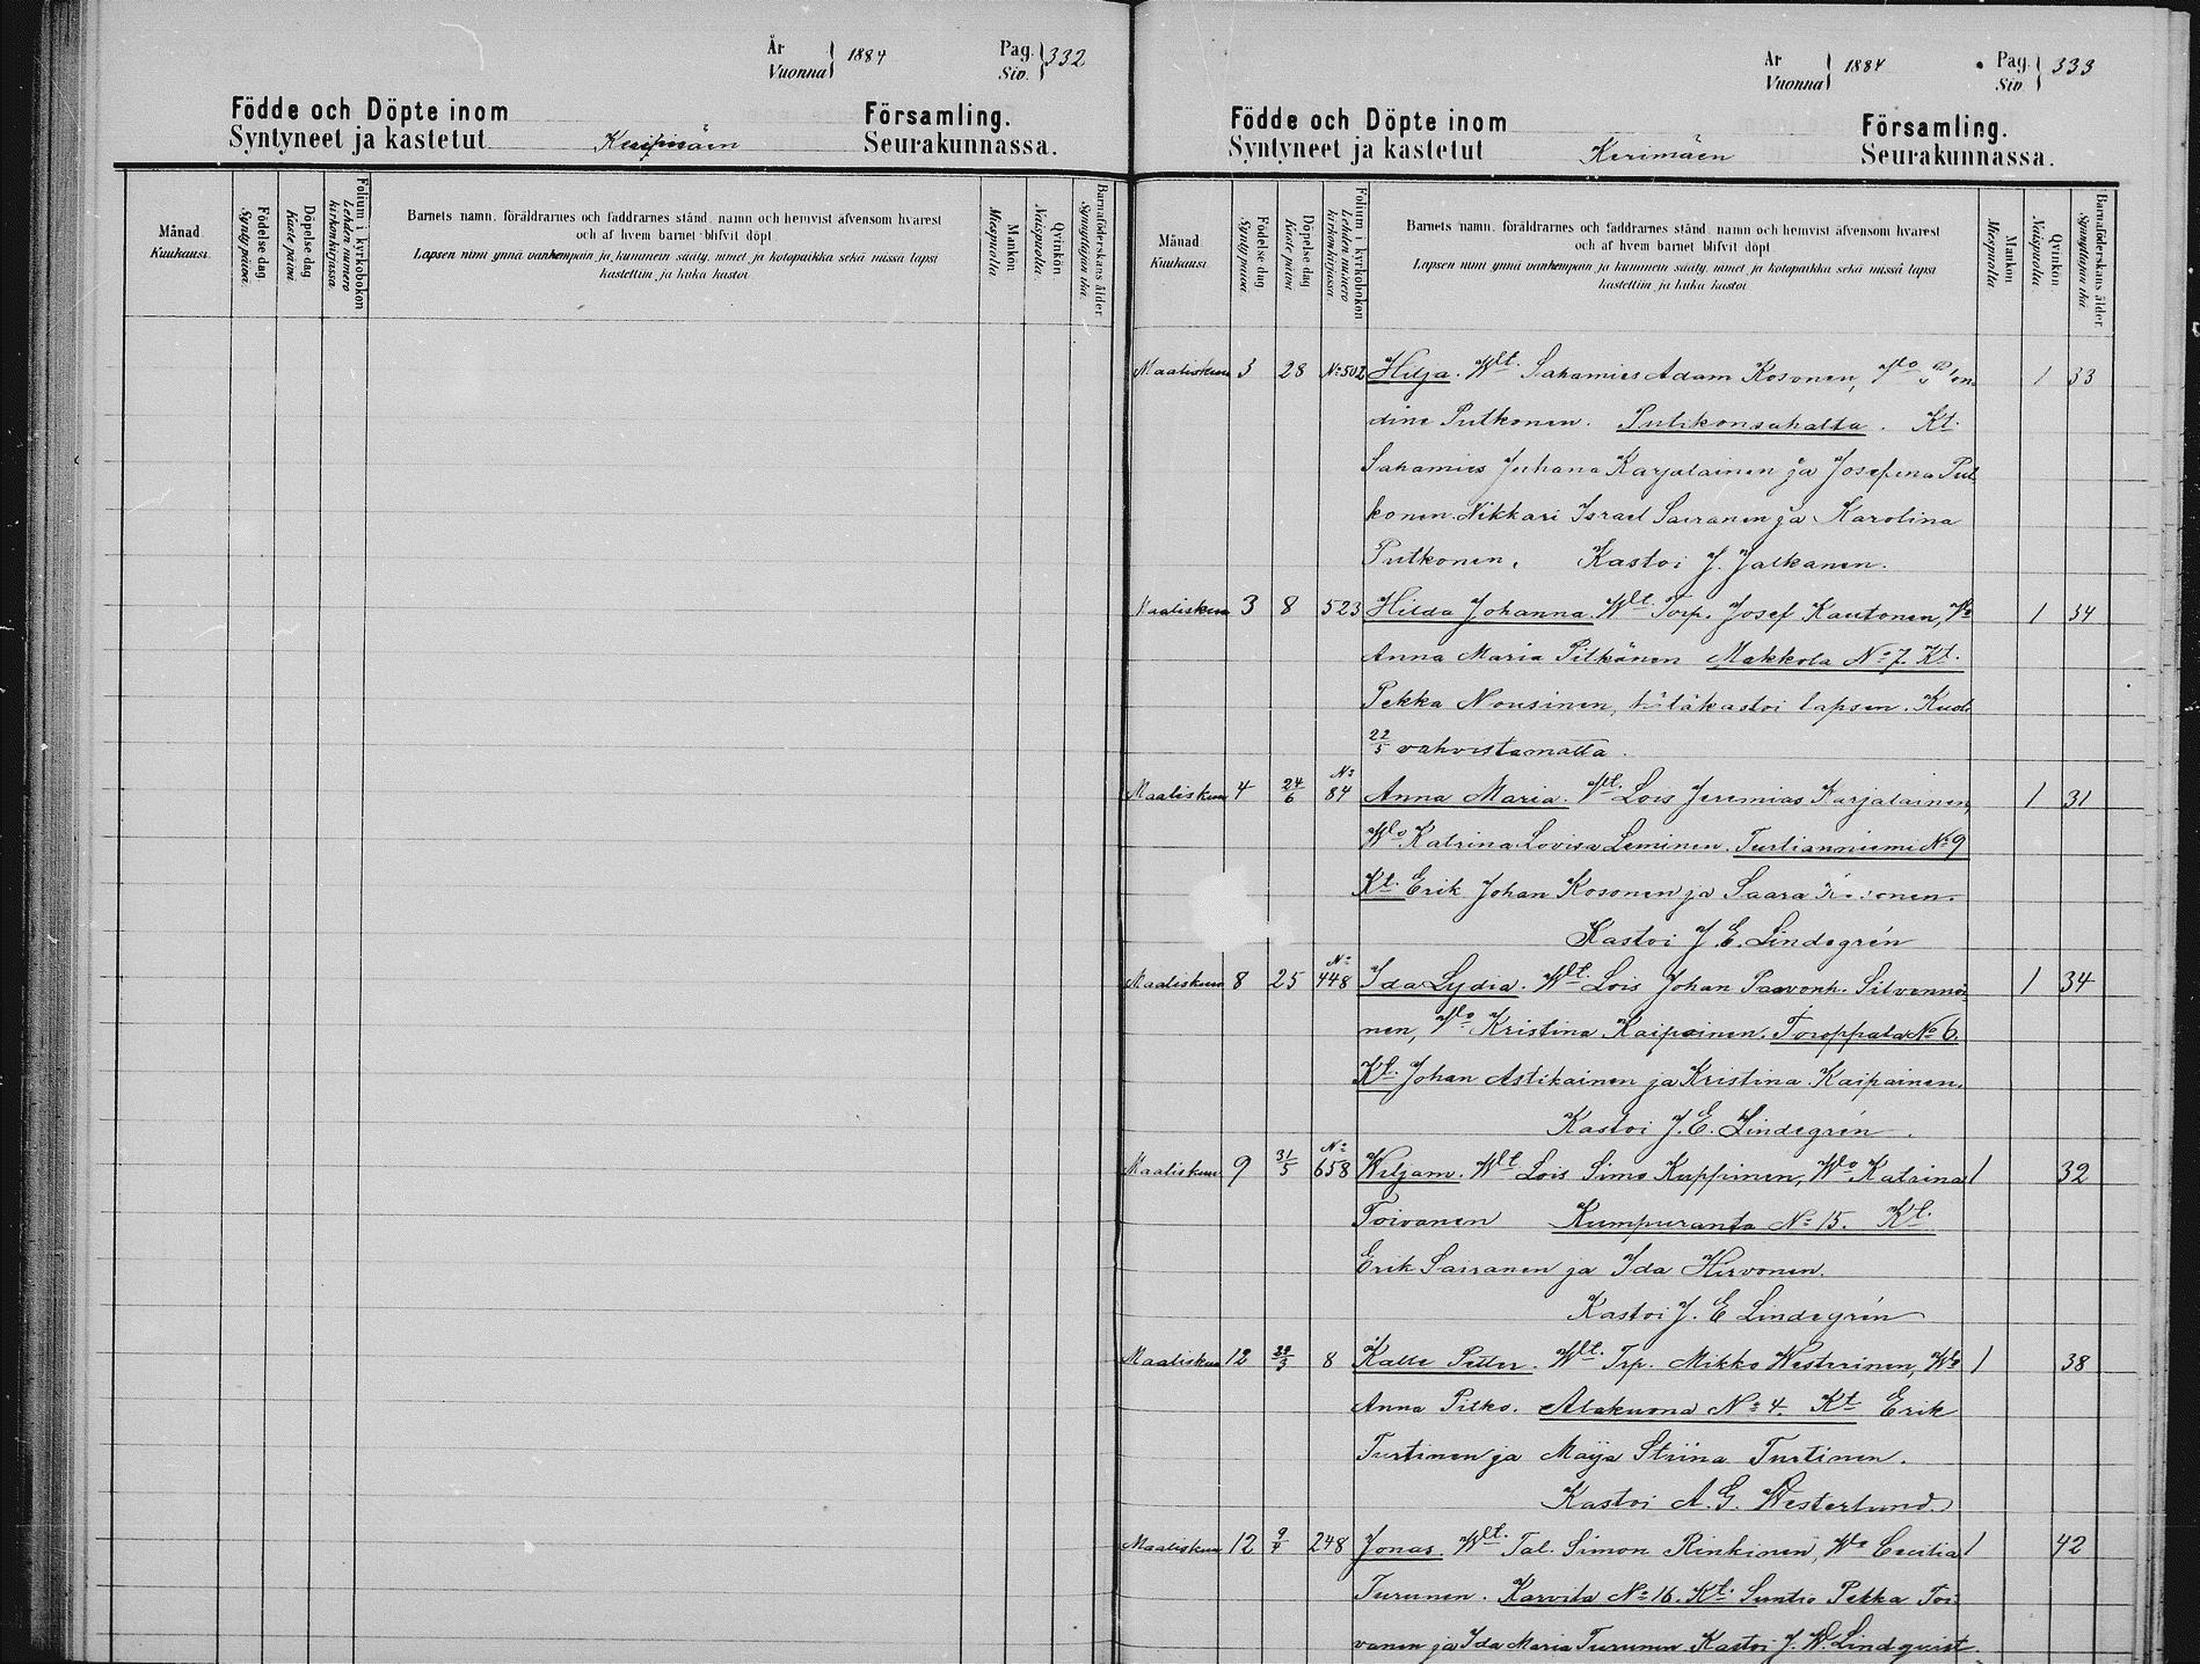 År
Vuonna } 1884
Pag.
Siv. } 332
Födde och Döpte inom
Syntyneet ja kastetut
Församling.
Seurakunnassa.
Månad.
Kuukausi.
Födelse dag
Synty päivä.
Döpelse dag
Kaste päivä.
Folium i kyrkoboken
Lehden numero kirkonkirjassa.
Barnets namn, föräldrarnes och faddrarnes stånd, namn och hemvist äfvensom hvarest
och af hvem barnet blifvit döpt.
Lapsen nimi ynnä vanhempain ja kummein sääty, nimet ja kotopaikka sekä missä lapsi
kastettiin ja kuka kastoi.
Mankön
Miespuolia.
Qvinkön
Naispuolia.
Barnaföderskans ålder
Synnyttäjän ikä.
År
Vuonna } 1884
Pag.
Siv } 333
Födde och Döpte inom
Syntyneet ja kastetut Kerimäen
Församling.
Seurakunnassa.
Månad
Kuukausi
Födelse dag
Synty päivä.
Döpelse dag
Kaste päivä.
Folium i kyrkoboken
Lehden numero kirkonkirjassa.
Barnets namn, föräldrarnes och faddrarnes stånd, namn och hemvist äfvensom hvarest
och af hvem barnet blifvit döpt.
Lapsen nimi ynnä vanhempain ja kummein sääty, nimet ja kotopaikka sekä missä lapsi
kastettiin ja kuka kastoi
Mankön
Miespuolia
Qvinkön
Naispuolia.
Barnaföderskans ålder
Synnyttäjän ikä
Maaliskuu 3 28 No 502 Hilja. Wlt. Sahamies Adam Kosonen, 1 33
dine Putkonen. Putikonsahalta. Kt.
Sahamies Juhana Karjalainen ja Josefina Put
konen. Nikkari Israel Sairanen ja Karolina
Putkonen. Kastoi J. Jalkanen.
Maaliskuu 3 8 523 Hilda Johanna. Wlt. Torp. Josef Kautonen, Wo 1 34
Anna Maria Pitkänen Makkola No 7. Kt.
Pekka Nousinen, hätäkastoi lapsen. Kuol.
22/5 vahvistamatta.
Maaliskuu 4 24/6 No 84 Anna Maria. Wlt. Lois Jeremias Karjalainen, 1 31
Wo Katrina Lovisa Leminen. Turtianniemi No 9
Kt. Erik Johan Kosonen ja Saara
Kastoi J. E. Lindegrén
Maaliskuu 8 25 No 448 Ida Lydia. Wlt. Lois Johan Paavonp. Silvennoi- 1 34
nen, Wo Kristina Kaipainen. Toroppala No 6.
Kt. Johan Astikainen ja Kristina Kaipainen.
Kastoi J. E. Lindegrén.
Maaliskuu 9 31/5 No 658 Viljam. Wlt Lois Simo Kuppinen, Wo Katrina 1 32
Toivanen Kumpuranta No 15. Kt.
Erik Sairanen ja Ida Hirvonen.
Kastoi J. E Lindegrén
Maaliskuu 12 29/3 8 Kalle Petter. Wlt. Trp. Mikko Westerinen, Wo 1 38
Anna Pitko. Alakuona No 4. Kt Erik
Turtinen ja Maija Stiina Turtinen.
Kastoi A. G. Westerlund.
Maaliskuu 12 9/4 248 Jonas. Wlt. Tal. Simon Rinkinen, Wo Cecilia 1 42
Turunen. Karvila No 16. Kt. Suntio Pekka Toi
vanen ja Ida Maria Turunen Kastoi J. W. Lindquist.